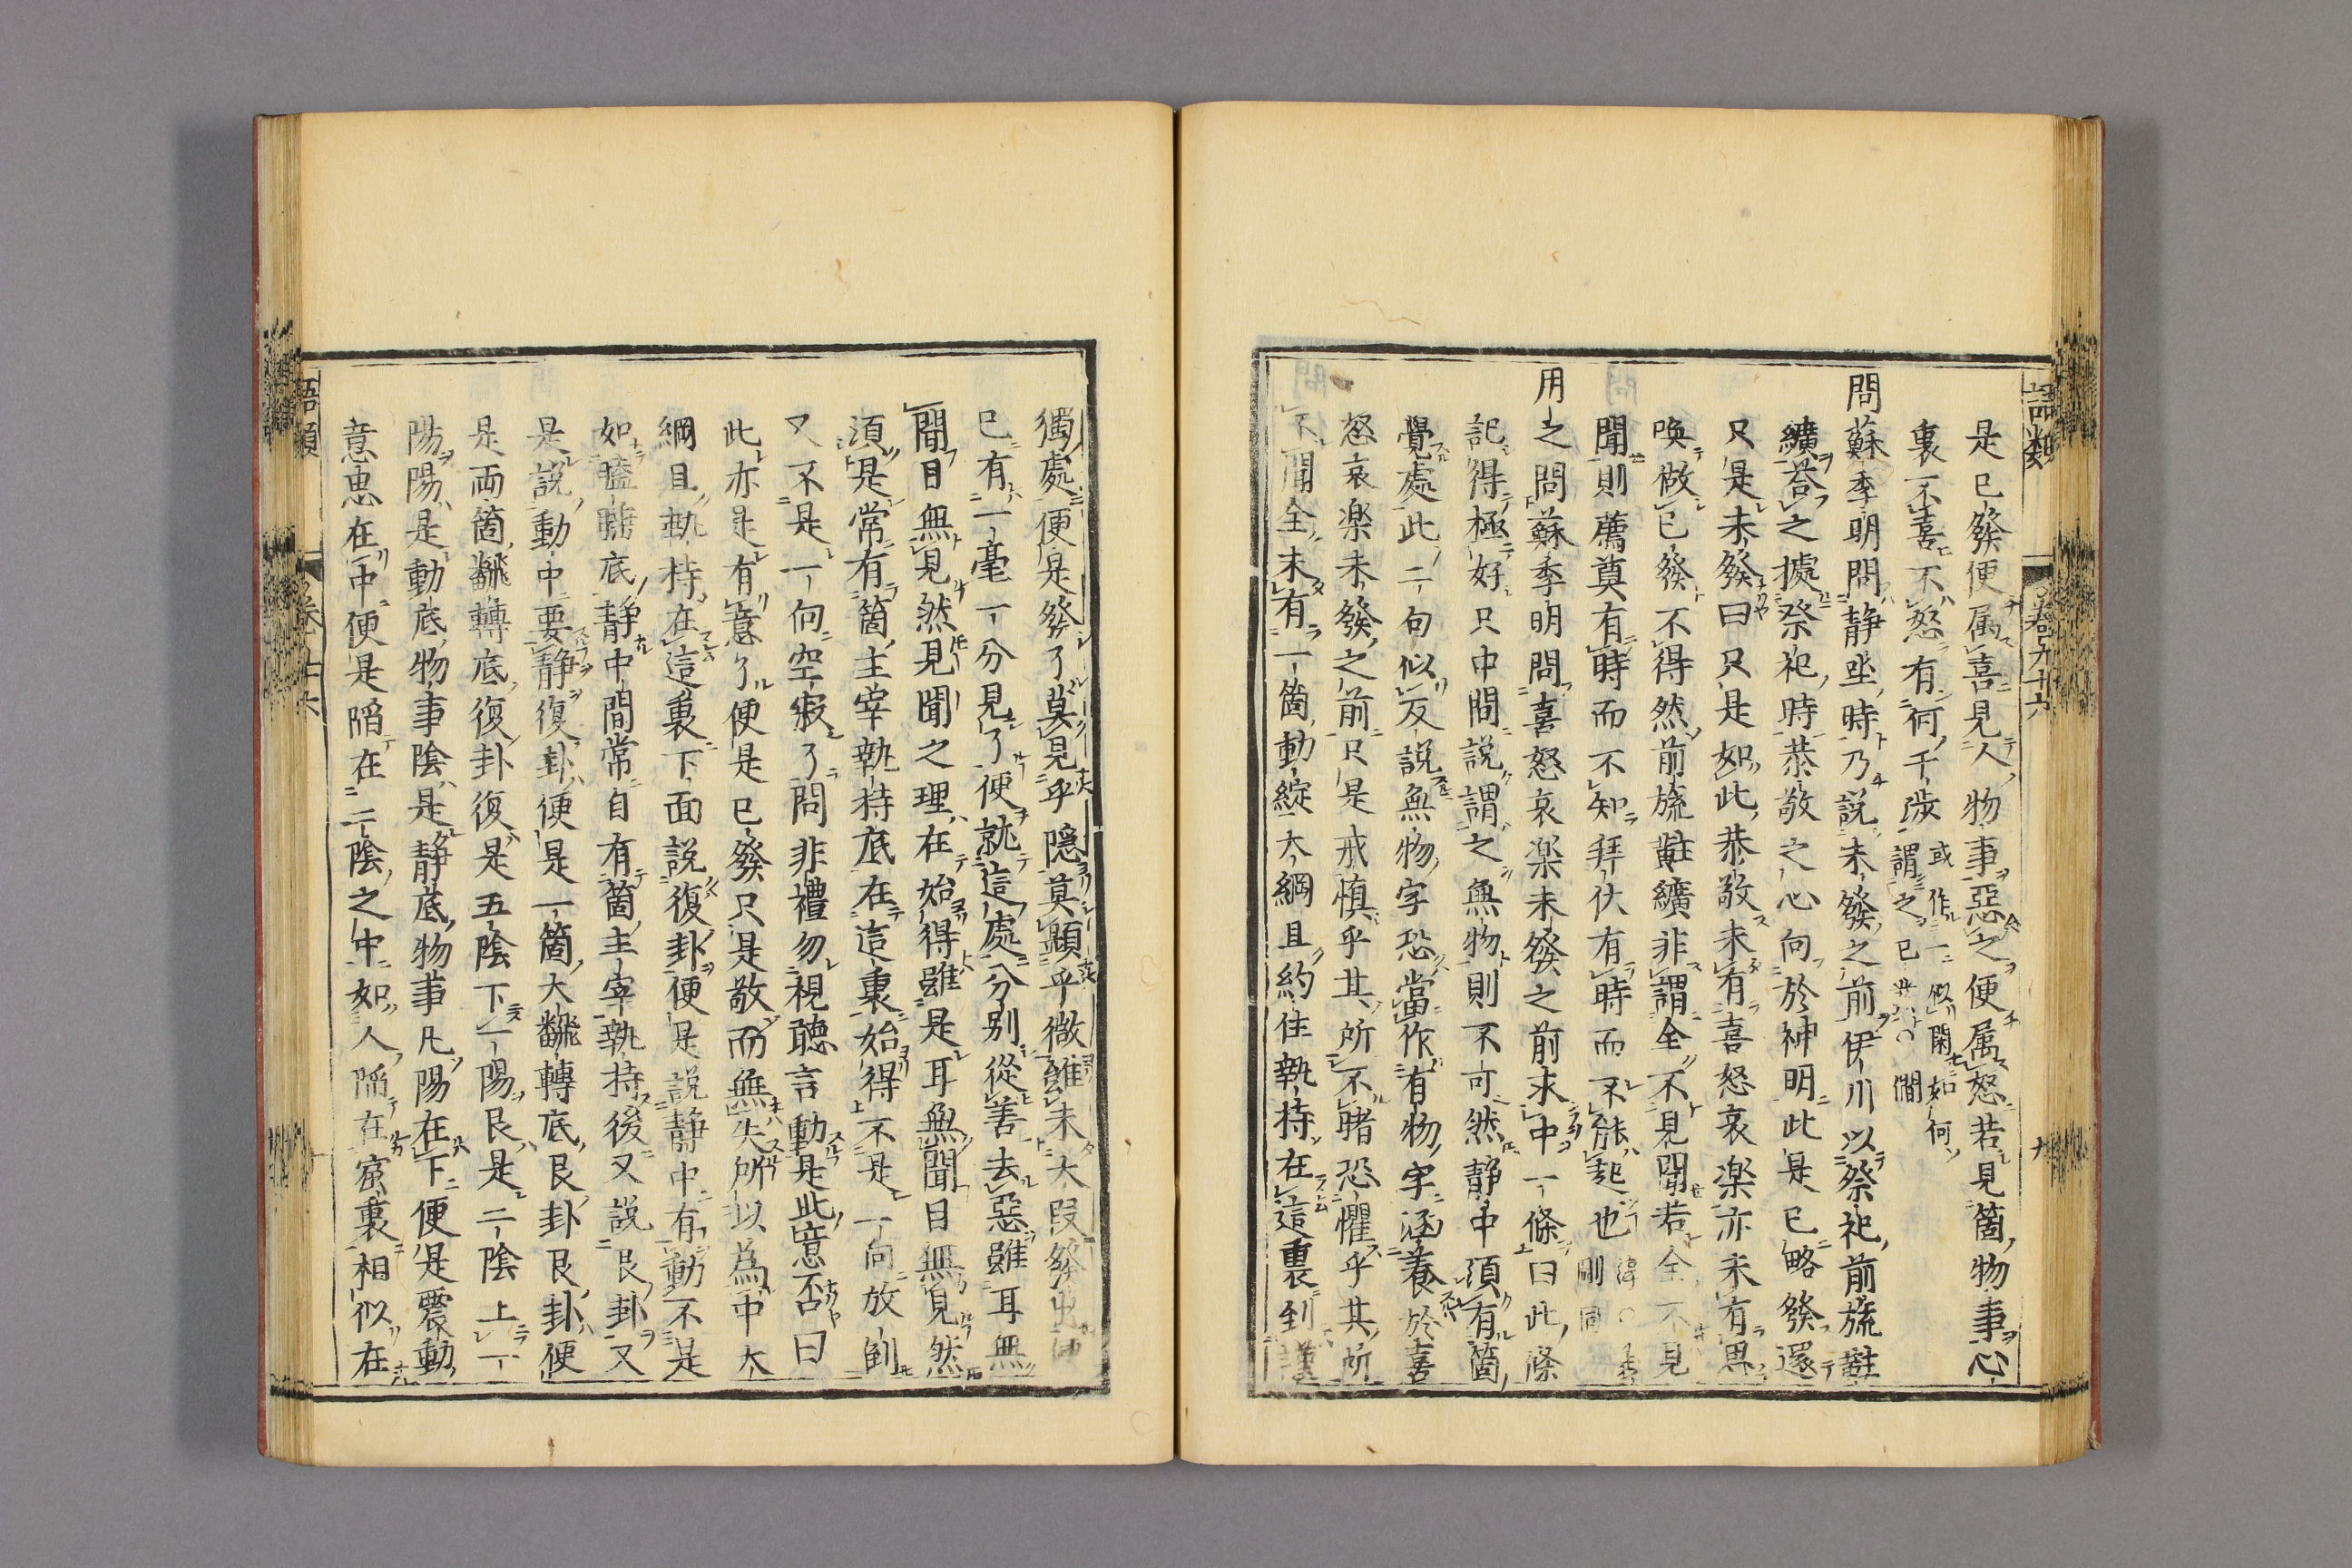 語類
卷九十六
十
是已發便属喜見人物事惡之便属怒若見箇物事心
裏不喜不怒有何干渉 或作一似閑如何謂之已 㽦○僩
問蘇季明問静坐時乃説未發之前伊川以祭祀前旒黈
纊荅之據祭祀時恭敬之心向於神明此是已略發還
只是未發曰只是如此恭敬未有喜怒哀楽亦未有思
喚做已發不得然前旒黈纊非謂全不見聞若全不見
聞則薦奠有時而不知拜伏有時而不能起也 淳○義剛同
用之問蘇季明問喜怒哀楽未發之前求中一條曰此條
記得極好只中間説謂之無物則不可然静中須有箇
覺處此二句似反説無物字恐當作有物字涵養於喜
怒哀楽未發之前只是戒慎乎其所不睹恐懼乎其所
不聞全未有一箇動綻大綱且約住執持在這裏到謹
獨處便是發了莫見乎隱莫顕乎微雖未大段發出便
已有一毫一分見了便就這處分别從善去惡雖耳無
聞目無見然見聞之理在始得雖是耳無聞目無見然
須是常有箇主宰執持底在這裏始得不是一向放倒
又不是一向空寂了問非禮勿視聽言動是此意否曰
此亦是有意了便是已發只是敬而無失所以為中大
綱且執持在這裏下面説復卦便是説静中有動不是
如瞌睡底静中間常自有箇主宰執持後又説艮卦又
是説動中要静復卦便是一箇大翻轉底艮卦艮卦便
是両箇翻轉底復卦復是五陰下一陽艮是二陰上一
陽陽是動底物事陰是静底物事凡陽在下便是震動
意思在中便是陷在二陰之中如人陷在窟裏相似在
語類
卷九十六